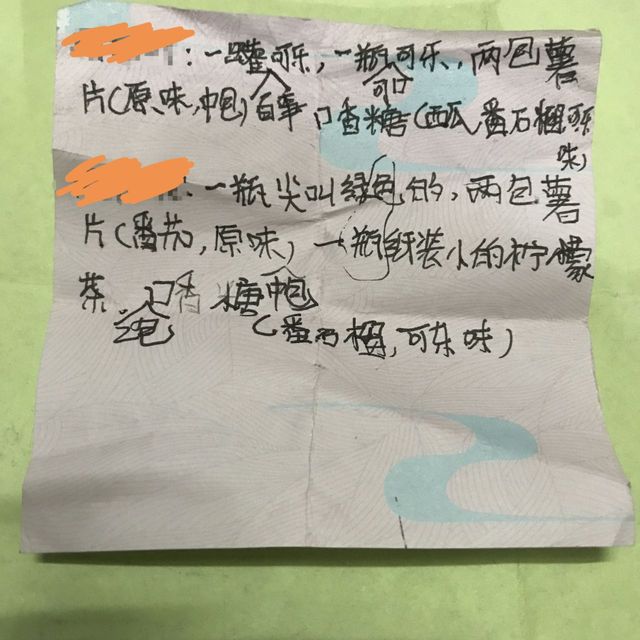 ：一罐可乐，一瓶可乐，两包薯
百事
可口
片(原味，中包) 口香糖(西瓜番石榴可乐
味)
：一瓶尖叫绿色的，两包薯
片(番茄，原味) 一瓶纸装小的柠檬
茶，口香糖中包
(番石榴，可乐味)